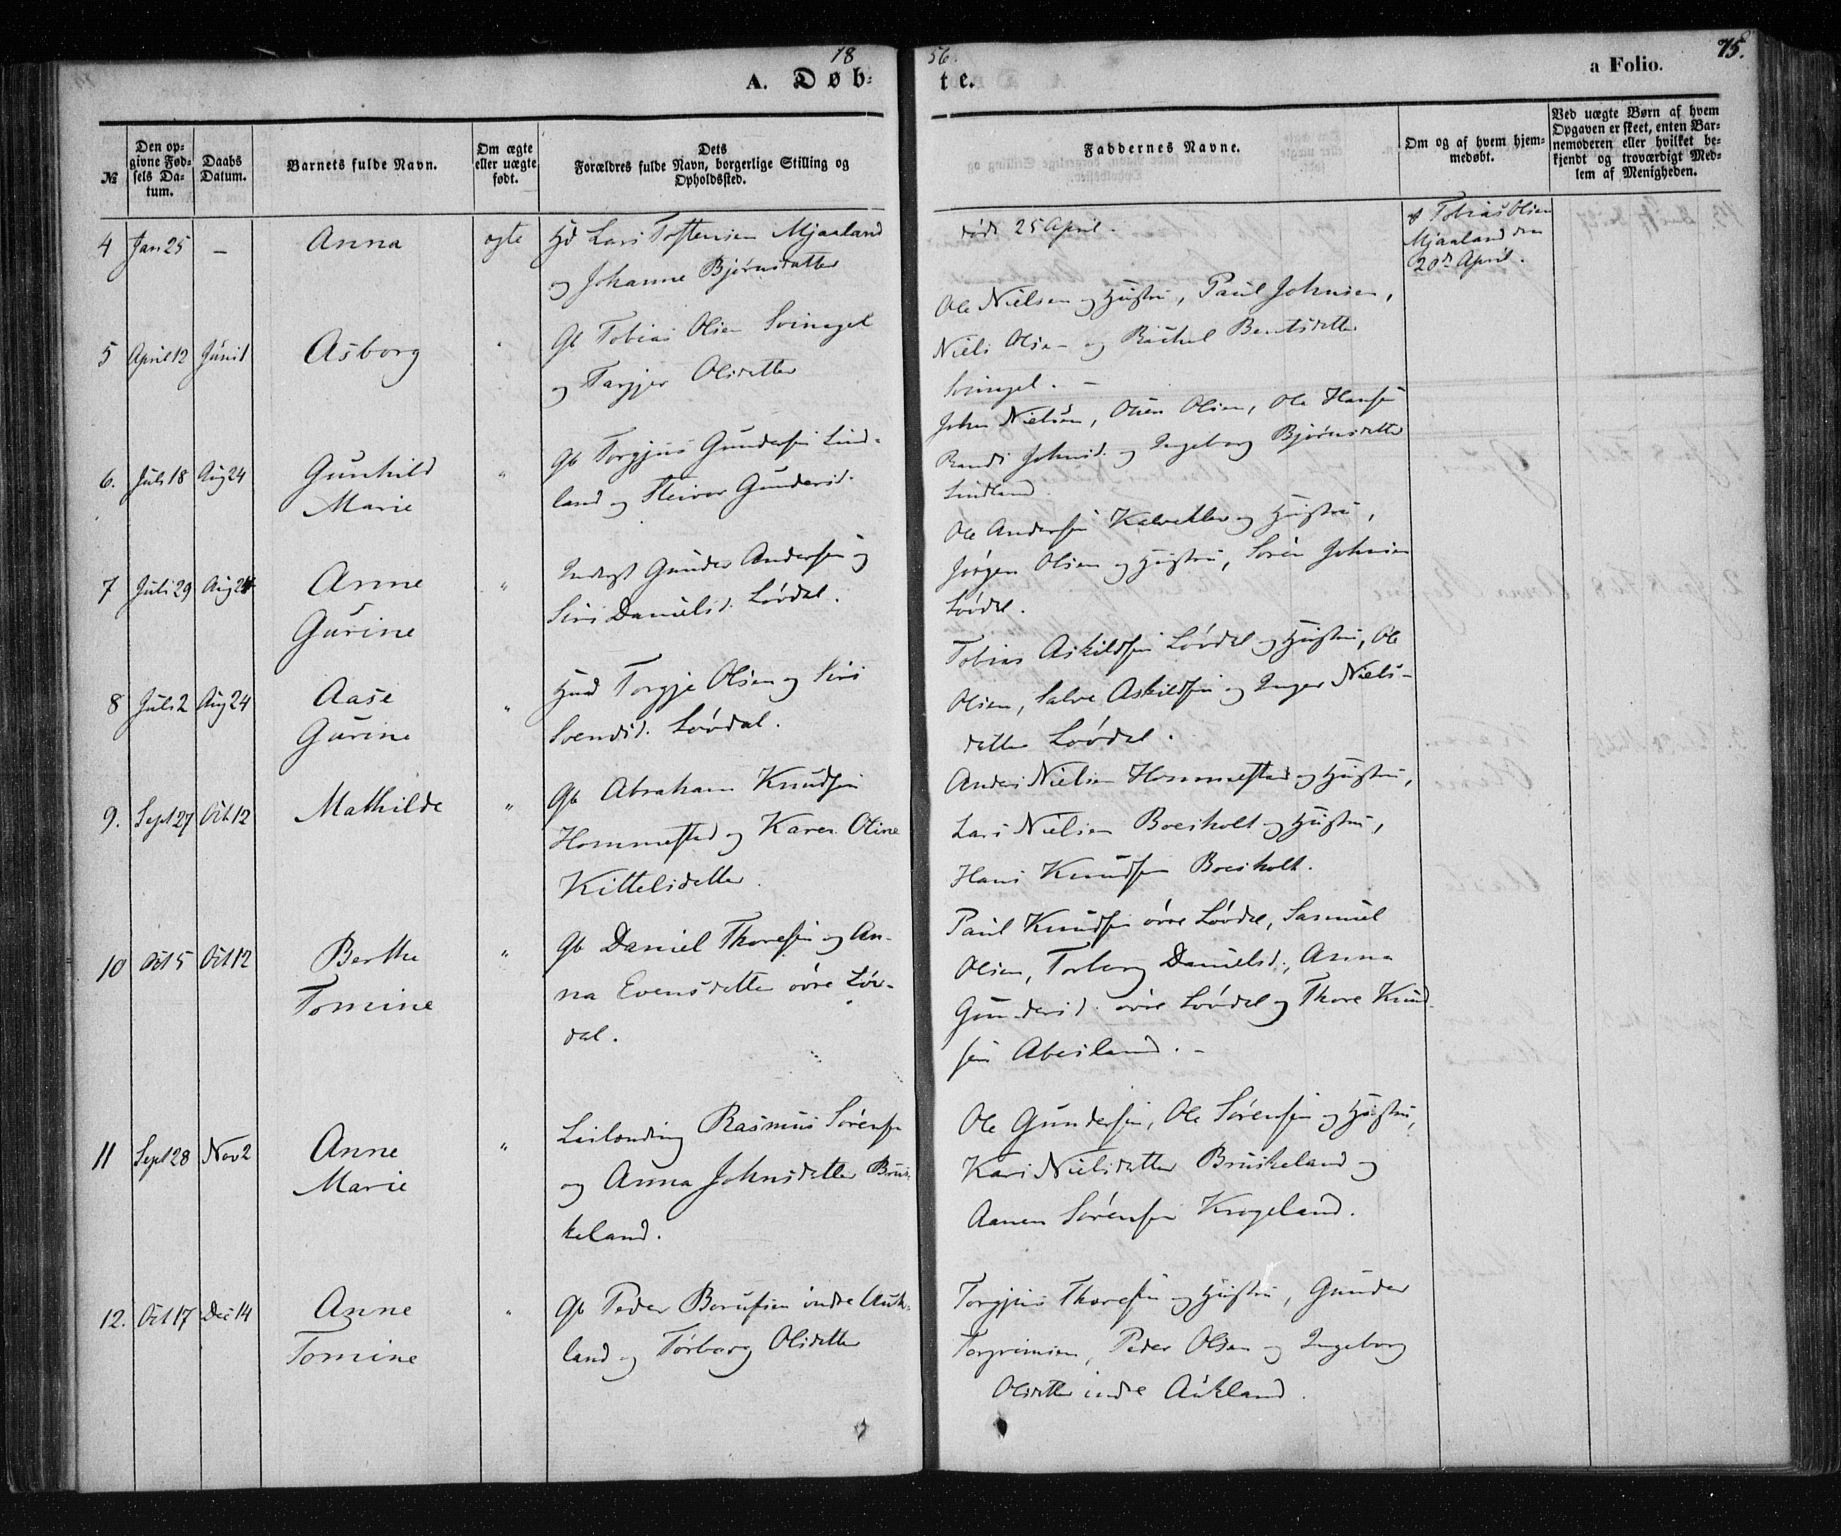 1856.
75.
A. Døbte.
a Folio.
№
Den opgivne Fødsels Datum.
Daabs Datum.
Barnets fulde Navn.
Om ægte eller uægte født.
Dets Forældres fulde Navn, borgerlige Stilling og Opholdssted.
Faddernes Navne.
Om og af hvem hjemmedøbt.
Ved uægte Børn af hvem Opgaven er skeet, enten Barnemoderen eller hvilket bekjendt og troværdigt Medlem af Menigheden.
4 Jan 25 – Anna ægte Hd Lars Tostensen Mjaaland
og Johanne Bjørnsdatter
død 25 April.
Tobias Olsen
Mjaaland den
20de April.
5 April 12 Juni 1 Asborg " Gb Tobias Olsen Svinegel
og Targjer Olsdatter
Ole Nielsen og Hustru, Paul Johnsen,
Niels Olsen og Rachel Bentsdatter
Svinegel. –
6. Juli 18 Aug 24 Gunhild
Marie
" Gb Torgjus Gundersen Lind-
land og Steivor Gundersd.
John Nielsen, Olsen, Ole Hansen
Randi Johnsd. og Ingeborg Bjørnsdatter
Lindland
7 Juli 29 Aug 24 Anne
Gurine
" Inderst Gunder Andersen og
Siri Danielsd. Løvdal.
Ole Andersen og Hustru,
Jørgen Olsen og Hustru, Søren Johnsen
Løvdal.
8 Juli 2 Aug 24 Aase
Gurine
" Hmd Torgje Olsen og Siri
Svendsd. Løvdal.
Tobias Askildsen Løvdal og Hustru, Ole
Olsen, Salve Askildsen og Inger Niels-
datter Løvdal.
9. Sept 27 Oct 12 Mathilde " Gb Abraham Knudsen
Hommestad og Karen Oline
Kittelsdatter.
Anders Nielsen Hommestad og Hustru,
Lars Nielsen Boesholt og Hustru,
Hans Knudsen Boesholt.
10 Oct 5 Oct 12 Berthe
Tomine
" Gb Daniel Thoresen og An-
na Evensdatter øvre Løv-
dal.
Paul Knudsen øvre Løvdal, Samuel
Olsen, Torborg Danielsd., Anna
Gundersd. øvre Løvdal og Thore Knud-
sen Abesland. –
11 Sept 28 Nov 2 Anne
Marie
" Leilending Rasmus Sørensen
og Anna Johnsdatter Brus-
keland.
Ole Gundersen, Ole Sørensen og Hustru,
Kari Nielsdatter Bruskeland og
Aanen Sørensen Krogeland.
12. Oct 17 Dec 14 Anne
Tomine
" Gb Peder Berulsen indre Auk-
land og Torborg Olsdatter
Torgjus Thoresen og Hustru, Gunder
Torgrimsen, Peder Olsen og Ingeborg
Olsdatter indre Aukland.